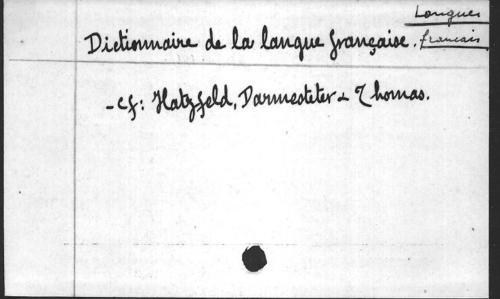 Langues
français
Dictionnaire de la langue française.
- cf: Hatzfeld, Darmesteter & Thomas.